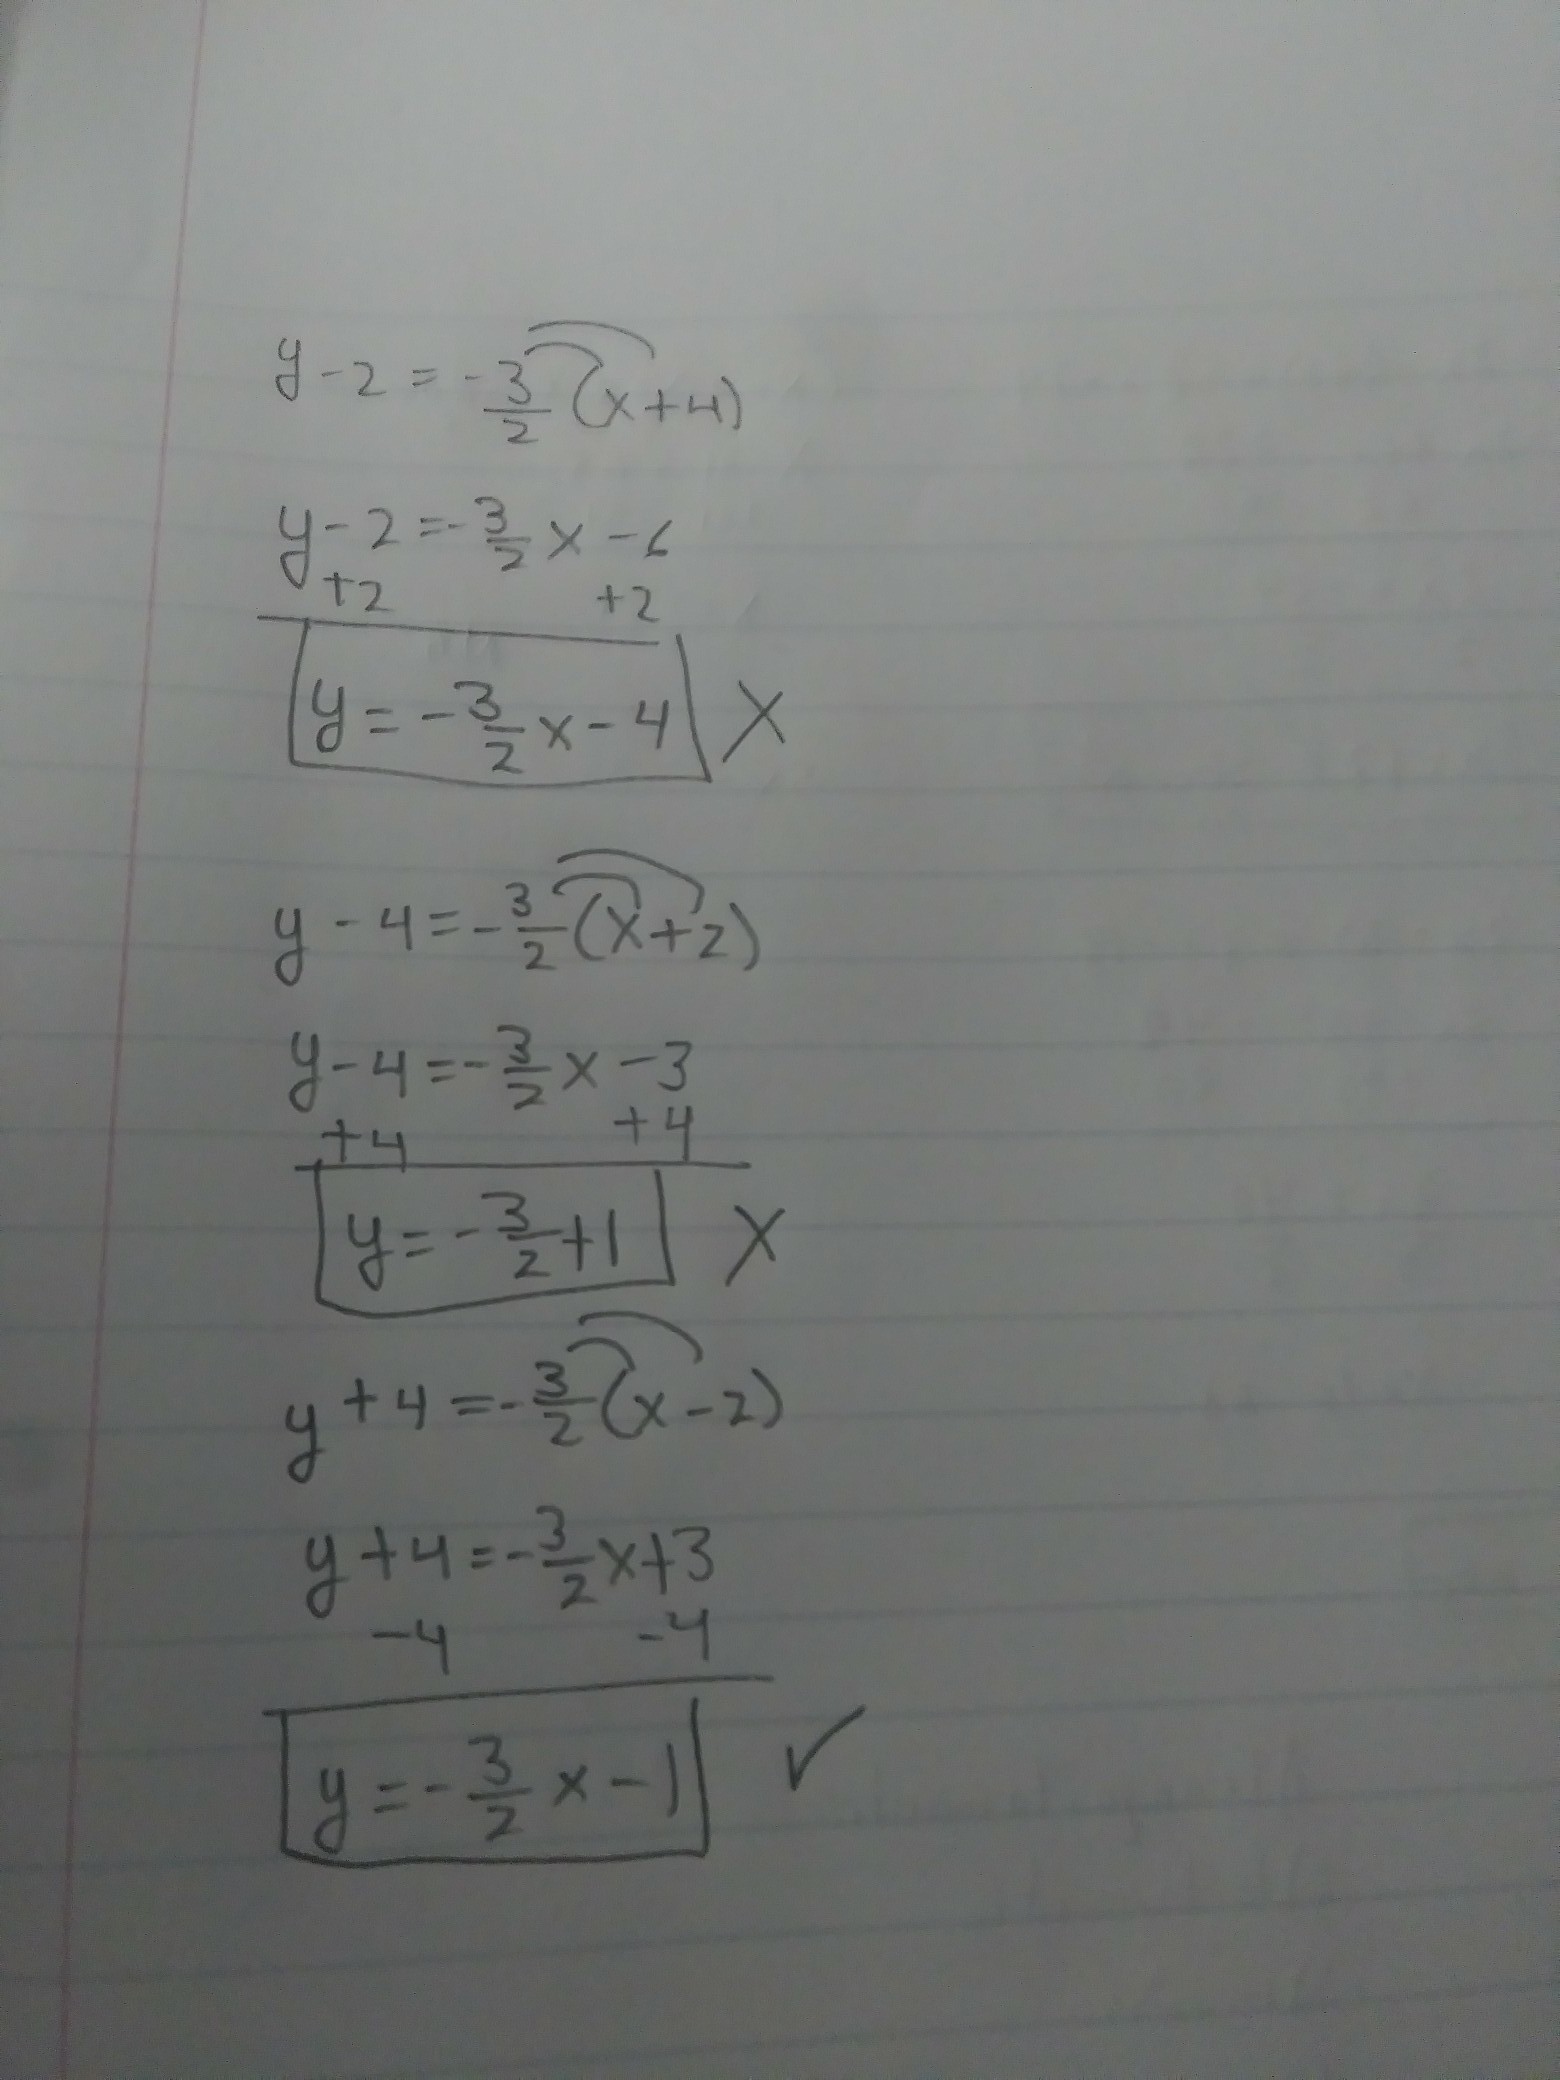 y - 2 = -3/2 (x+4)
y - 2 = -3/2 x - 6
+2 +2
y = -3/2 x - 4 X
y - 4 = -3/2 (x+2)
y - 4 = -3/2 x - 3
+4 +4
y = -3/2 + 1 X
y + 4 = -3/2 (x - 2)
y + 4 = -3/2 x + 3
-4 -4
y = -3/2 x - 1 ✓